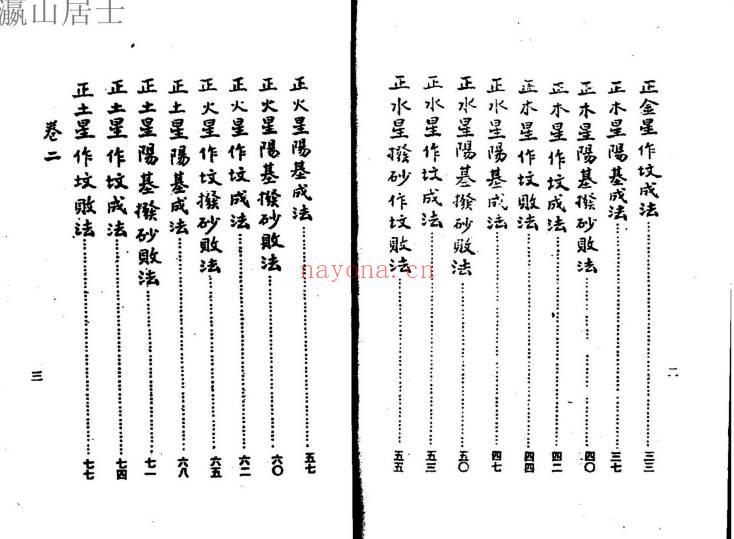 瀛山居士
正金星作坟成法 三三
正木星陽基成法 三七
正木星陽基撥砂敗法 四〇
正木星作坟成法 四二
正木星作坟敗法 四四
正水星陽基成法 四七
正水星陽基撥砂敗法 五〇
正水星作坟成法 五三
正水星撥砂作坟敗法 五五
二
正火星陽基成法 五七
正火星陽基撥砂敗法 六〇
正火星作坟成法 六二
正火星作坟撥砂敗法 六五
正土星陽基成法 六八
正土星陽基撥砂敗法 七一
正土星作坟成法 七四
正土星作坟敗法 七七
卷二
三
nayona.cn